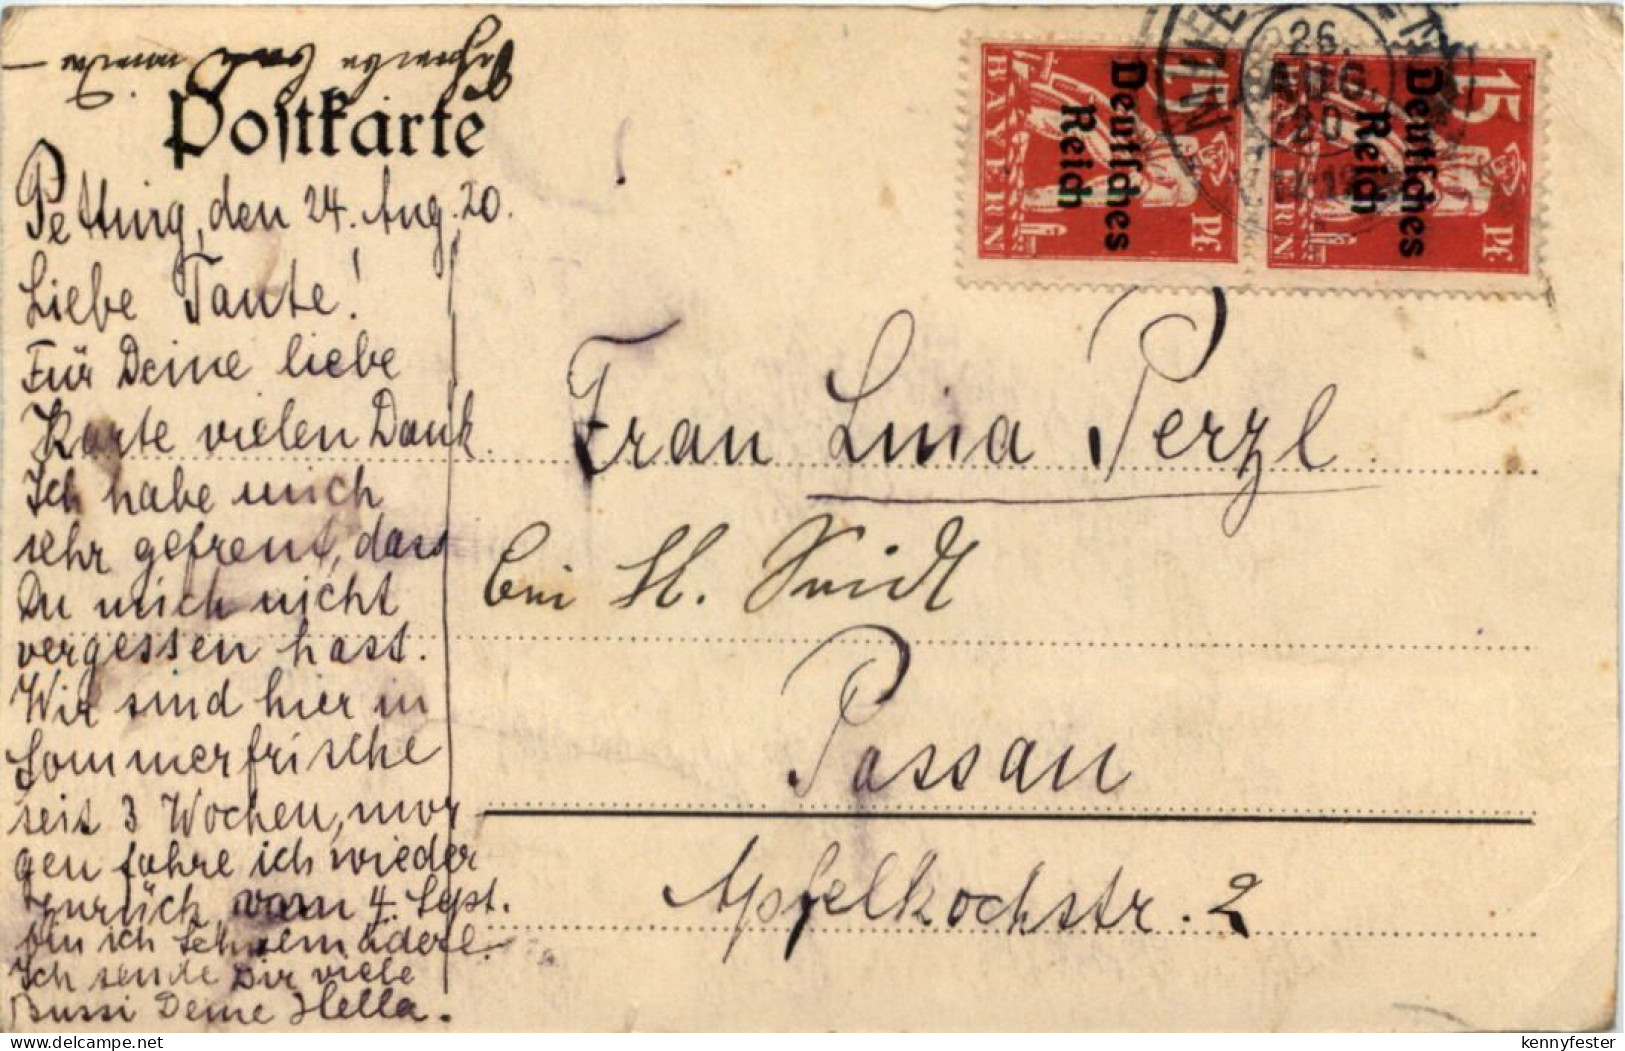 Postkarte
Petting, den 24. Aug. 20.
Liebe Tante!
Für Deine liebe
Karte vielen Dank.
Ich habe mich
sehr gefreut, dass
Du mich nicht
vergessen hast.
Wir sind hier in
Sommerfrische
seit 3 Wochen, mor
gen fahre ich wieder
zurück, vom 4. Sept.
bin ich Schulmäderl.
Ich sende Dir viele
Bussi Deine Hella.
15 Deutsches Reich BAYERN Pf
15 Deutsches Reich BAYERN Pf
26. AUG. 20
Frau Lina Perzl
bei H.
Passau
Apfelkochstr. 2
kennyfester